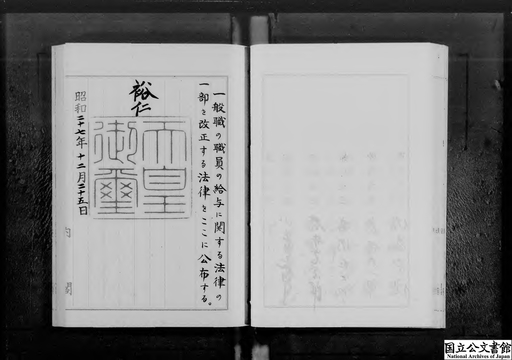 一般職の職員の給与に関する法律の
一部を改正する法律をここに公布する。
裕仁
天皇
御璽
昭和二十七年十二月二十五日
内閣
国立公文書館
National Archives of Japan